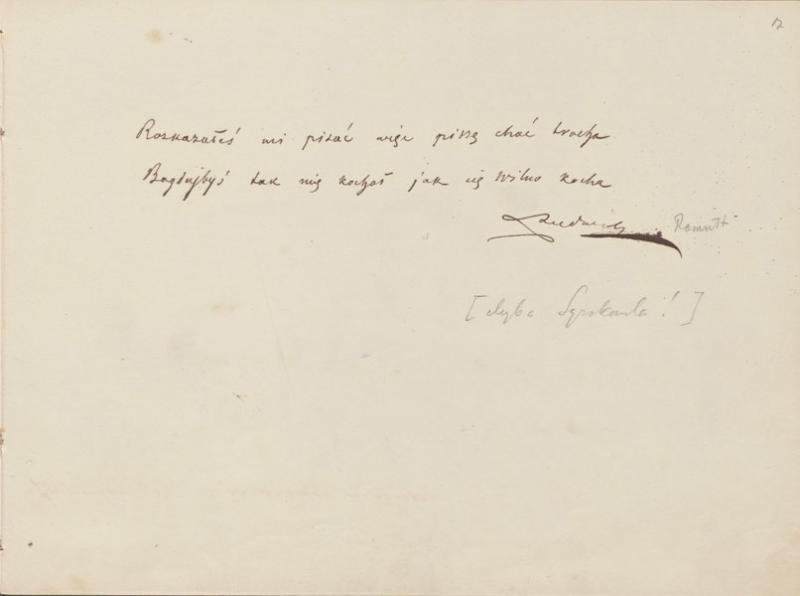 12
Rozkazałeś mi pisać więc piszę choć trocha
Bogdajbyś tak mię kochał jak cię Wilno kocha
[chyba Syrokomla!]